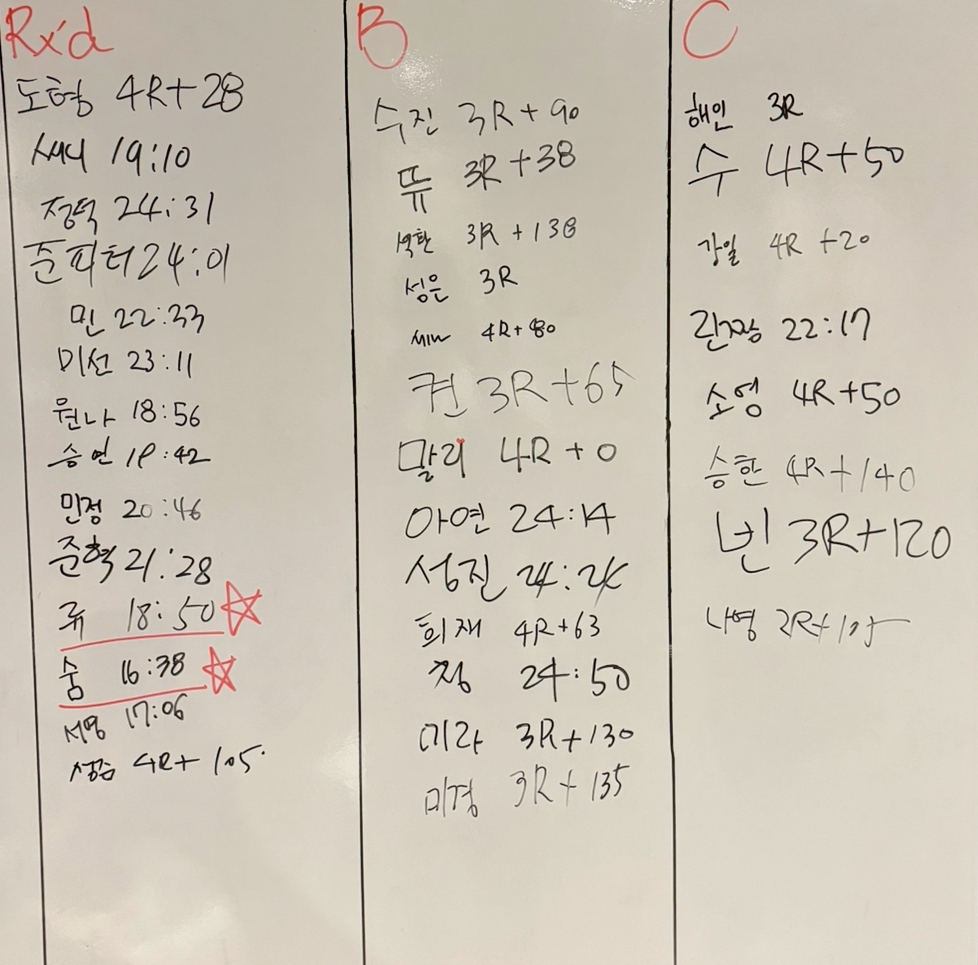 Rx'd
도형 4R+28
써니 19:10
정덕 24:31
준피터 24:01
민 22:33
미선 23:11
원나 18:56
승연 19:42
민정 20:46
준혁 21:28
류 18:50
숨 16:38
17:06
4R+105
B
수진 3R+90
뜌 3R+38
3R+138
성은 3R
4R+80
퀸 3R+65
말리 4R+0
아연 24:14
성진
희재 4R+63
정 24:50
미라 3R+130
미경 3R+135
C
해인 3R
수 4R+50
강일 4R+20
간장 22:17
소영 4R+50
승한 4R+140
빈 3R+120
나영 2R+105